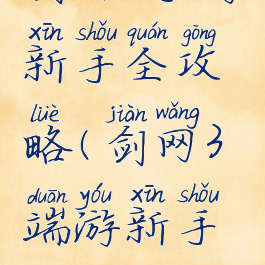 xīn shǒu quán gōng
新手全攻
lüè jiàn wǎng
略(剑网3
duān yóu xīn shǒu
端游新手